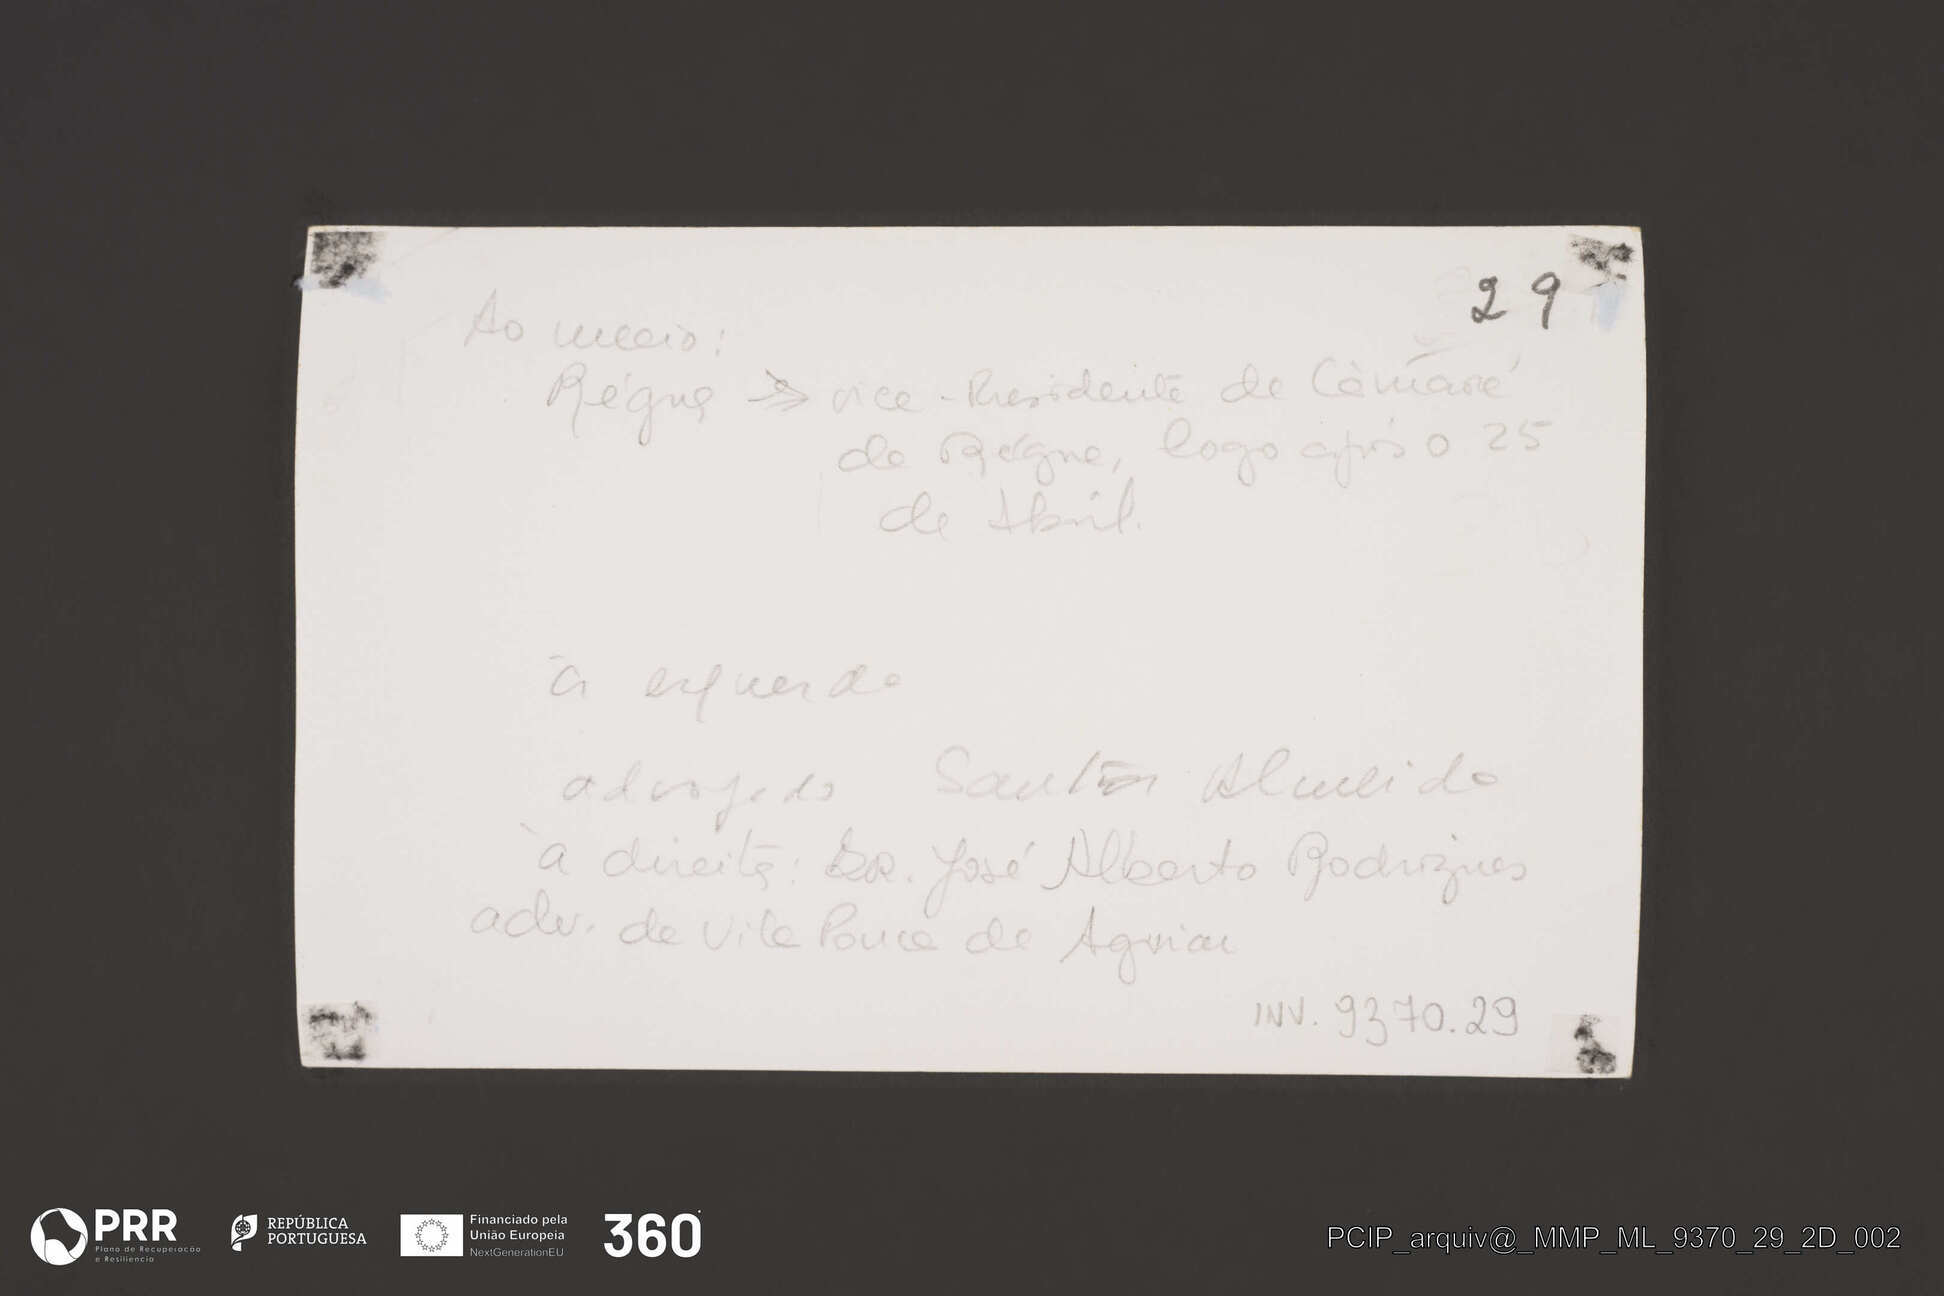 29
Ao meio:
Régua → vice-Presidente da Câmara
da Régua, logo após o 25
de Abril.
à esquerda
advogado Santos Almeida
à direita: Dr. José Alberto Rodrigues
adv. de Vila Pouca de Aguiar
INV. 9370.29
PRR
Plano de Recuperação
e Resiliência
REPÚBLICA
PORTUGUESA
Financiado pela
União Europeia
NextGenerationEU
360
PCIP_arquiv@_MMP_ML_9370_29_2D_002